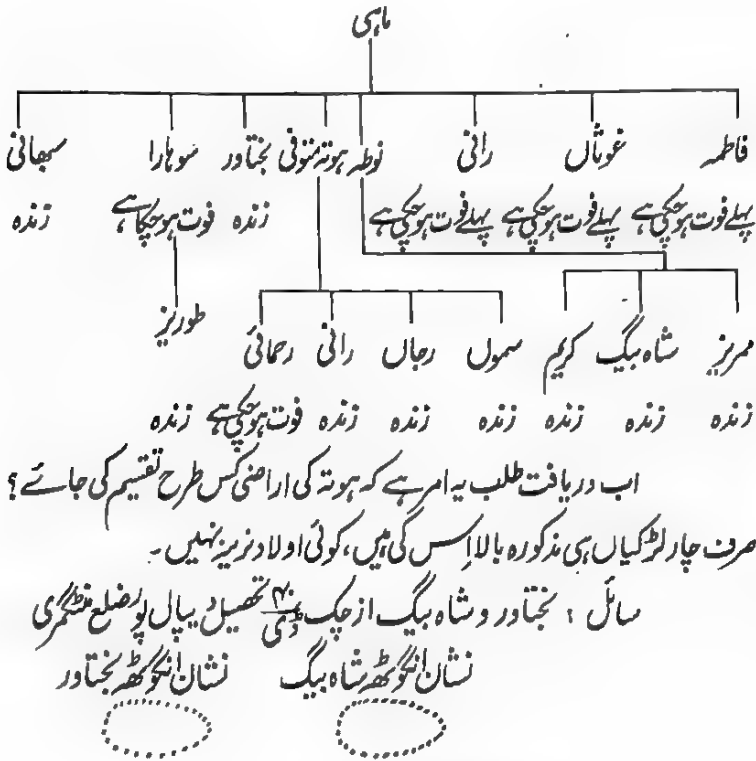 ماہی
فاطمہ غوثاں رانی نوطہ ہوتہ متوفی بختاور سوہارا سبھانی
پہلے فوت ہوچکی ہے پہلے فوت ہوچکی ہے پہلے فوت ہوچکی ہے زندہ فوت ہوچکا ہے زندہ
طوریز
مریز شاہ بیگ کریم سموں رجاں رانی رحمائی
زندہ زندہ زندہ زندہ زندہ زندہ فوت ہوچکی ہے زندہ
اب دریافت طلب یہ امر ہے کہ ہوتہ کی اراضی کس طرح تقسیم کی جائے؟
صرف چار لڑکیاں ہی مذکورہ بالا اس کی ہیں، کوئی اولاد نرینہ نہیں۔
سائل: بختاور و شاہ بیگ از چک ڈی تحصیل دیپال پور ضلع منٹگمری
نشان انگوٹھہ شاہ بیگ نشان انگوٹھہ بختاور